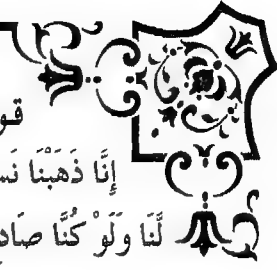 قو
إِنَّا ذَهَبْنَا نَس
لَّنَا وَلَوْ كُنَّا صَادِ